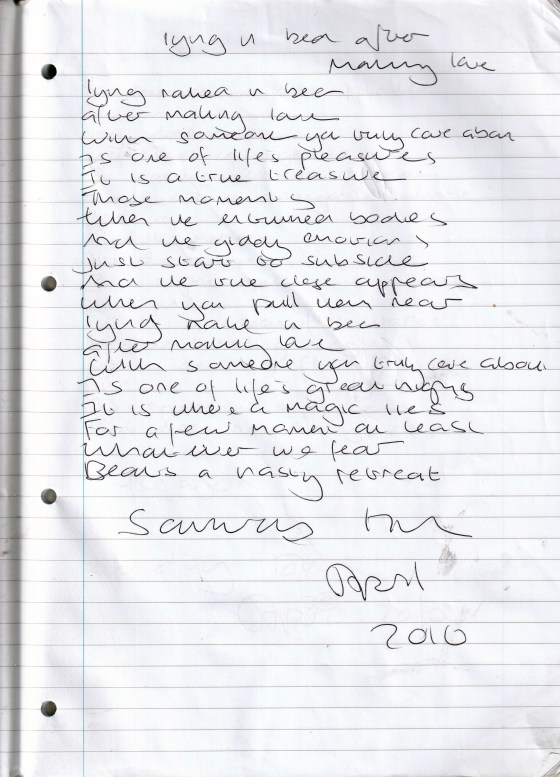 lying in bed after
making love
lying naked in bed
after making love
with someone you truly care about
Is one of life's pleasures
It is a true treasure
Those moments
When the entwined bodies
And the giddy emotions
Just start to subside
And the true close appears
When you pull them near
lying naked in bed
after making love
With someone you truly care about
Is one of life's great
It is where magic lies
For a few moment at least
Whatever we fear
Beats a hasty retreat
April
2010